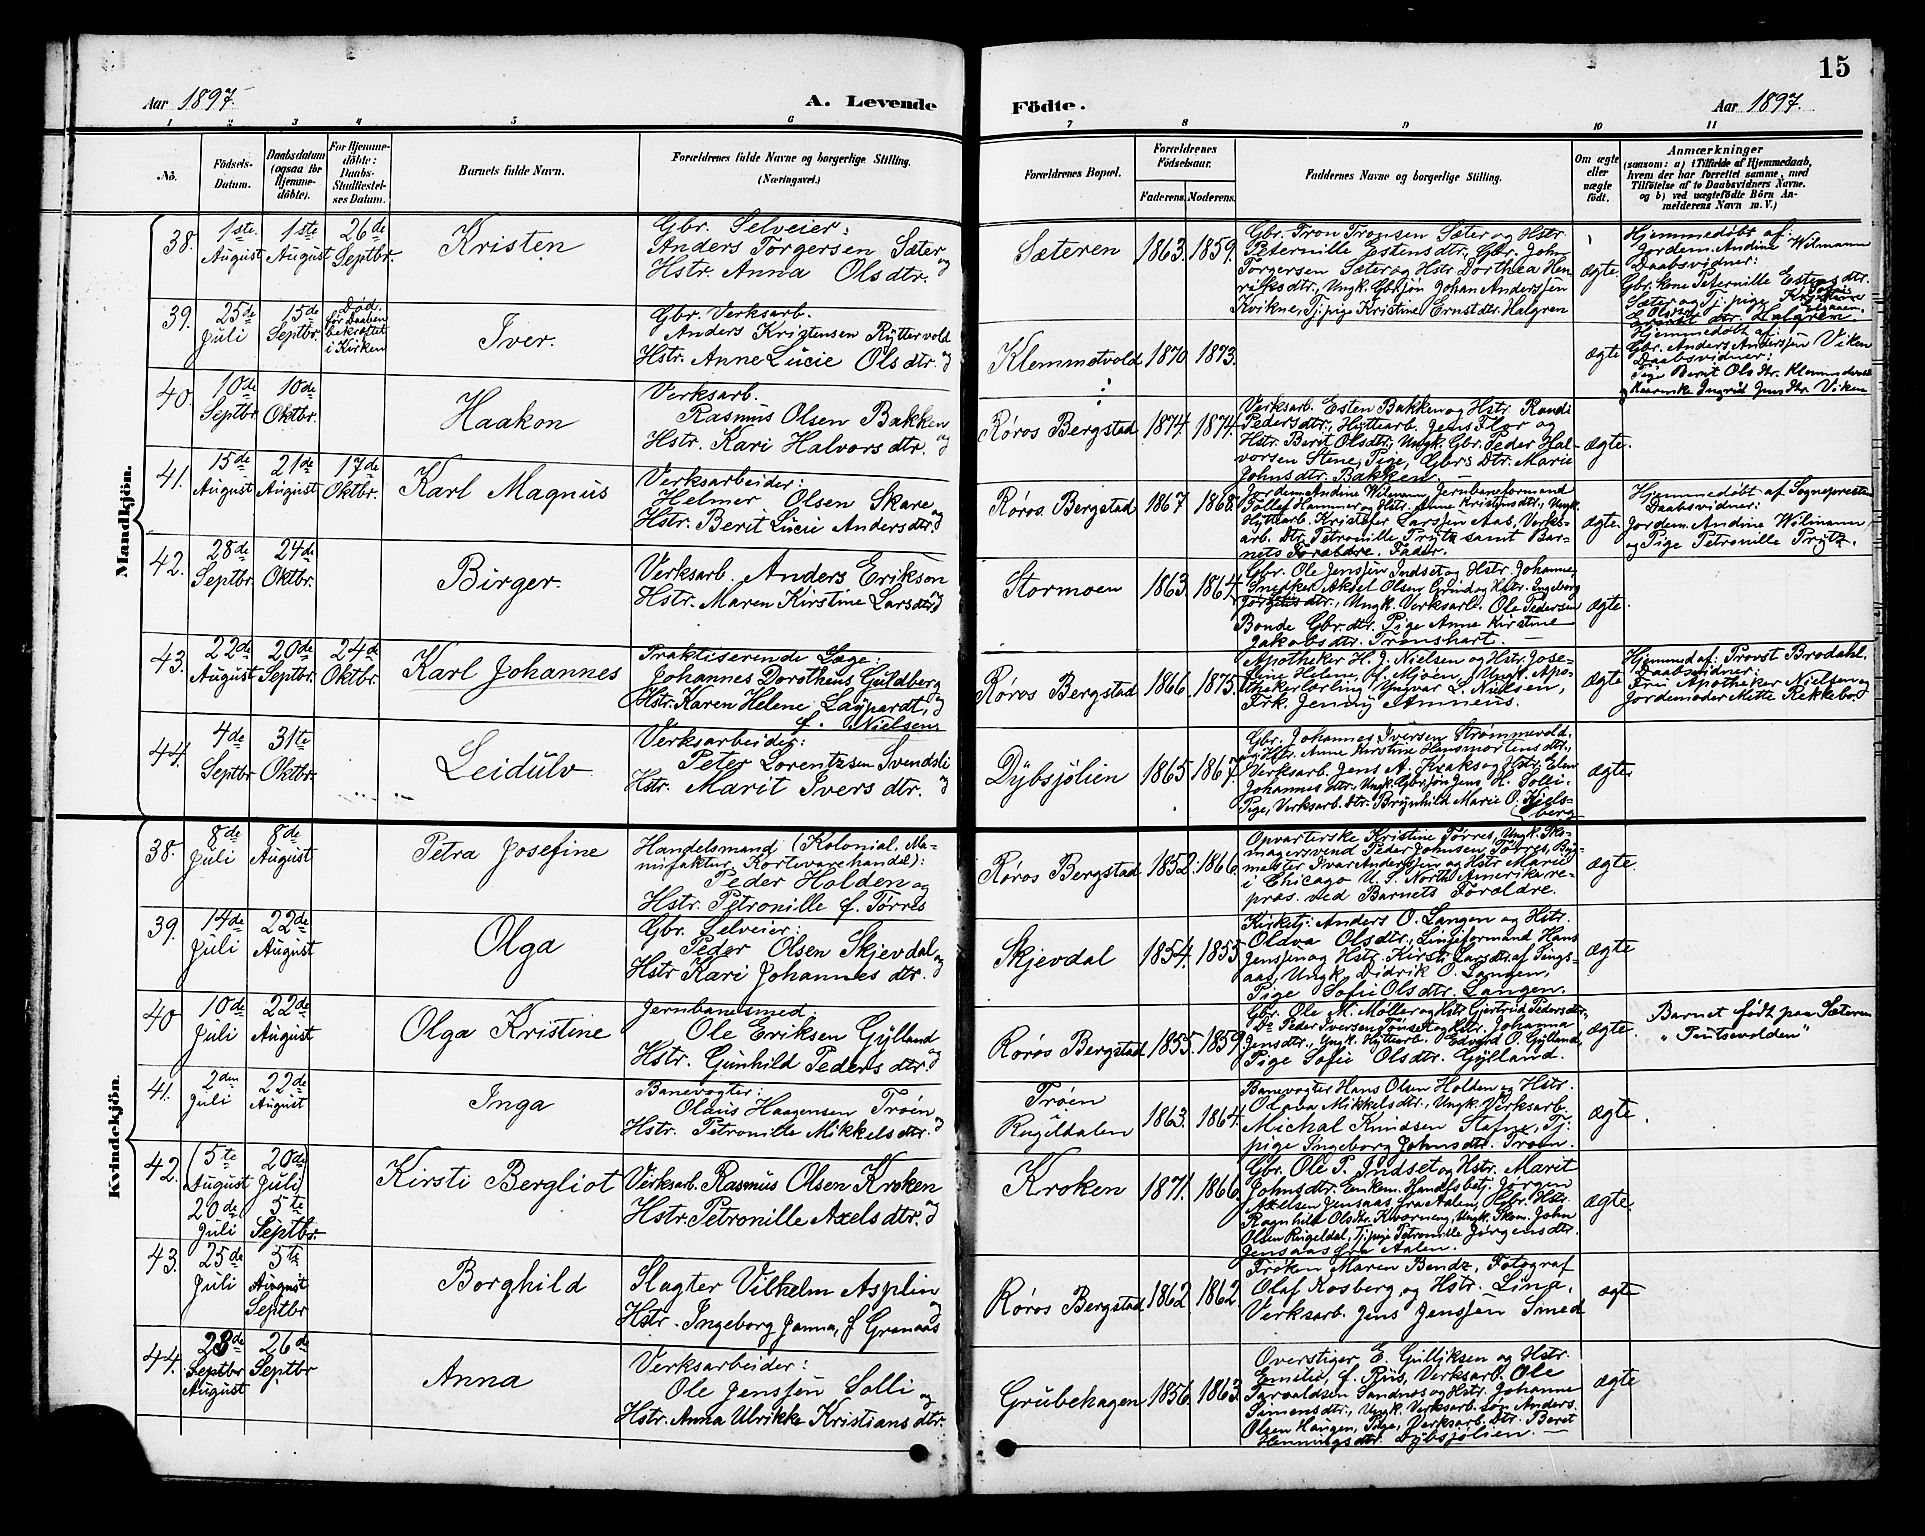 15
Aar 1897.
A. Levende
Födte.
Aar 1897.
1 2 3 4 5 6 7 8 9 10 11
No.
Födsels-
Datum.
Daabsdatum
(ogsaa for
Hjemme-
döbte).
For Hjemme-
döbte:
Daabs-
Stadfæstel-
ses Datum.
Barnets fulde Navn.
Forældrenes fulde Navne og borgerlige Stilling.
(Næringsvei.)
Forældrenes Bopæl.
Forældrenes
Födselsaar.
Faderens. Moderens.
Faddernes Navne og borgerlige Stilling.
Om ægte
eller
uægte
födt.
Anmærkninger
(saasom: a) i Tilfælde af Hjemmedaab,
hvem der har forrettet samme, med
Tilföielse af to Daabsvidners Navne,
og b) ved uægtefödte Börn An-
melderens Navn m. V.)
Mandkjön.
38. 1ste August 1ste August 26de Septbr. Kristen
Gbr. Selveier:
Anders Torgersen Sæter og
Hstr. Anna Olsdtr.
Sæteren 1863. 1859.
Gbr. Tron Tronsen Sæter og Hstr.
Peternille Estensdtr., Gbr. John
Torgersen Sæter og Hstr. Dorthea Hen-
riksdtr., Ungk. Gbr.sön Johan Anderssen
Kvikne, Tj. pige Kristine Ernstdtr. Halgren
ægte.
Hjemmedøbt af:
Jordem. Andine Wilmann
Daabsvidner:
Gbr. kone Peternille Estensdtr.
Sæter og Tj. pige Kristine
39. 25de Juli 15de Septbr. Död. för Daaben bekræftet i Kirken Iver.
Gbr. Verksarb.
Anders Kristensen Ryttervold og
Hstr. Anne Lucie Olsdtr.
Klemmetvold 1870 1873.
ægte
Hjemmedøbt af:
Gbr. Anders Anderssen Viken
Daabsvidner:
Pige Berit Olsdtr. Klemmetvold
og Ingrid Jensdtr. Viken
40. 10de Septbr. 10de Oktbr. Haakon
Verksarb.
Rasmus Olsen Bakken og
Hstr. Kari Halvorsdtr.
Röros Bergstad 1874. 1874.
Verksarb. Esten Bakken og Hstr. Randi
Pedersdtr., Hyttearb. Jens Flor og
Hstr. Berit Olsdtr., Ungk. Gbr. Peder Hal-
vorsen Stene, Pige, Gbrs Dtr. Marie
Johnsdtr. Bakken. —
ægte.
41. 15de August 21de August 17de Oktbr. Karl Magnus
Verksarbeider:
Helmer Olsen Skare og
Hstr. Berit Lucie Andersdtr.
Röros Bergstad 1867 1868.
Jordem. Andine Wilmann, Jernbaneformand
Tollef Hammer og Hstr. Anne Kristensdtr., Ungk.
Hyttearb. Kristofer Larssen Aas, Verks-
arb. Dtr. Petronille Prytz samt Bar-
nets Forældre. Fader.
ægte.
Hjemmedøbt af Sognepresten
Daabsvidner:
Jordem. Andine Wilmann
og Pige Petronille Prytz.
42. 28de Septbr. 24de Oktbr. Birger.
Verksarb. Anders Erikson og
Hstr. Maren Kirstine Larsdtr.
Stormoen 1863. 1864.
Gbr. Ole Jenssen Indset og Hstr. Johanne,
Snedker Aksel Olsen Grind og Hstr. Ingeborg
Jörgensdtr., Ungk. Verksarb. Ole Pedersen
Bonde Gbr. dtr. Pige Anne Kirstine
Jakobsdtr. Tronshart. —
ægte.
43. 22de August 20de Septbr. 24de Oktbr. Karl Johannes
Praktiserende Læge:
Johannes Dorotheus Guldberg og
Hstr. Karen Helene Laypardt,
f. Nielsen
Röros Bergstad 1866. 1875.
Apotheker H. J. Nielsen og Hstr. Jose-
fine Helene, f. Mjöen, Ungk. Apo-
thekerlærling Yngvar L. Nielsen,
Frk. Jenny Amneus.
ægte
Hjemmed. af: Provst Brodahl.
Daabsvidner:
Fru Apotheker Nielsen og
Jordemoder Mette Rekkebo
44. 4de Septbr 31te Oktbr. Leidulv
Verksarbeider:
Peter Lorentzsen Svendsli og
Hstr. Marit Iversdtr.
Dybsjölien 1865. 1867.
Gbr. Johannes Iversen Strömmevold.
og Hstr. Anne Kirstine Hansmortensdtr.,
Verksarb. Jens A. Kraks og Hstr. Elen
Johannesdtr., Ungk. Gbr. sön Jens H. Solli.
Pige, Verksarb. dtr. Brynhild Marie O. Kjels-
berg
ægte.
Kvindekjön.
38. 8de Juli 8de August Petra Josefine
Handelsmand (Kolonial, Ma-
nufaktur, Kortevarehandel):
Peder Holden og
Hstr. Petronille f. Törres
Röros Bergstad 1852. 1866.
Opvarterske Kristine Törres, Ungk. Sko-
magersvend Peder Johnsen Törres, Byg-
mester Ivar Anderssen og Hstr Marie
i Chicago U. S. North Amerika re-
præs. ved Barnets Forældre.
ægte.
39. 14de Juli 22de August Olga
Gbr. Selveier:
Peder Olsen Skjevdal og
Hstr Kari Johannesdtr.
Skjevdal 1854. 1855
Kirketj. Anders O. Langen og Hstr.
Oldva Olsdtr., Linieformand Hans
Jenssen og Hstr. Kirsti Larsdtr. af Sings-
aas, Ungk. Didrik O. Langen,
Pige Sofie Olsdtr. Langen.
ægte
40 10de Juli 22de August Olga Kristine
Jernbanesmed:
Ole Eriksen Gylland og
Hstr. Gunhild Pedersdtr.
Röros Bergstad 1855. 1859.
Gbr. Ole M. Möller og Hstr Gjertrud Pedersdtr.,
Do Peder Iversen Tönset og Hstr. Johanna
Jensdtr., Ungk. Hyttearb. Edvard O. Gylland,
Pige Sofie Olsdtr. Gylland.
ægte.
Barnet født paa Sæteren
"Tufsevolden"
41. 2den Juli 22de August Inga
Banevogter:
Olaus Haagensen Tröen og
Hstr. Petronille Mikkelsdtr.
Tröen
i Rugldalen 1863. 1864.
Banevogter Hans Olsen Holden og Hstr.
Olava Mikkelsdtr., Ungk. Verksarb.
Michal Knudsen Stefne, Tj.
pige Ingeborg Johnsdtr. Troen.
ægte
42. (5te August 20de Juli) 20de Juli 5te Septbr. Kirsti Bergliot
Verksarb. Rasmus Olsen Kroken og
Hstr. Petronille Axelsdtr.
Kroken 1871. 1866.
Gbr. Ole P. Indset og Hstr. Marit
Johnsdtr. Enkem. Handelsbetj. Jörgen
Axelsen Jensaas fra Aalen, Gbr. Hstr.
Ragnhild Olsdtr. Kværneng, Ungk. Skom. John
Olsen Rugeldal, Tj. pige Petronille Jörgensdtr.
Jensaas fra Aalen.
ægte.
43. 25de Juli 5te August Septbr Borghild
Slagter Vilhelm Asplin og
Hstr. Ingeborg Janna, f Granaas
Röros Bergstad 1862 1862.
Fröken Maren Bendz, Fotograf
Olaf Kosberg og Hstr. Lina,
Verksarb. Jens Jenssen Smed
ægte
44. 23de Septbr August 26de Septbr Anna
Verksarbeider:
Ole Jenssen Solli og
Hstr. Anna Ulrikke Kristiansdtr.
Grubehagen 1856. 1863.
Overstiger E. Gulliksen og Hstr.
Emilie, f. Riis, Verksarb. Ole
Tarvaldsen Sandnes og Hstr. Johanne
Simensdtr., Ungk. Verksarb. sön Anders
Olsen Haugen, Pige, Verksarb. Dtr. Beret
Henningsdtr. Dybsjölien. —
ægte